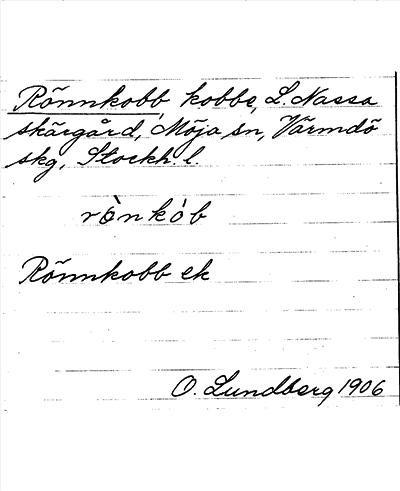 Rönnkobb, kobbe, L. Nassa
skärgård, Möja sn, Värmdö
skg, Stockh. l.
rȍnkȯb
Rönnkobb ek
O. Lundberg 1906